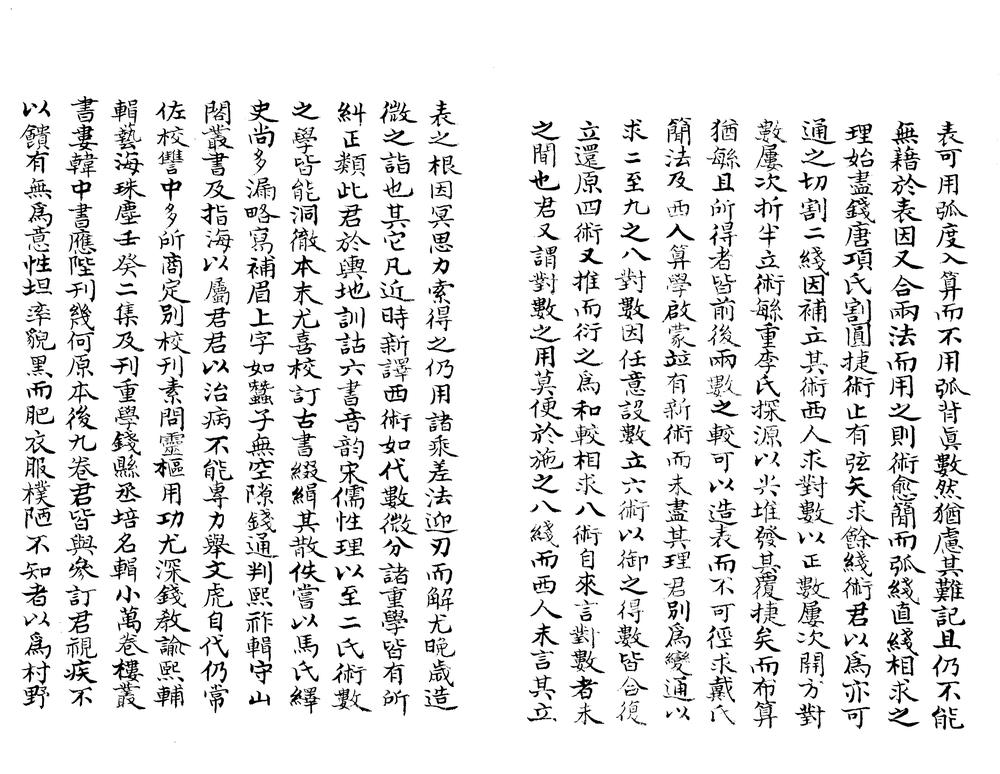 表可用弧度入算而不用弧背眞數然猶慮其難記且仍不能
無藉於表因又合兩法而用之則術愈簡而弧綫直綫相求之
理始盡錢唐項氏割圓捷術止有弦矢求餘綫術君以爲亦可
通之切割二綫因補立其術西人求對數以正數屢次開方對
數屢次折半立術繇重李氏探源以尖堆發其覆捷矣而布算
猶繇且所得者皆前後兩數之較可以造表而不可徑求戴氏
簡法及西人算學啟蒙竝有新術而未盡其理君別爲變通以
求二至九之八對數因任意設數立六術以御之得數皆合復
立還原四術又推而衍之爲和較相求八術自來言對數者未
之間也君又謂對數之用莫便於施之八綫而西人未言其立
表之根因冥思力索得之仍用諸乘差法迎刃而解尤晚歲造
微之詣也其它凡近時新譯西術如代數微分諸重學皆有所
糾正類此君於輿地訓詁六書音韵宋儒性理以至二氏術數
之學皆能洞徹本末尤喜校訂古書綴緝其散佚嘗以馬氏繹
史尚多漏略寫補眉上字如蠶子無空隙錢通判熙祚輯守山
閣叢書及指海以屬君君以治病不能專力舉文虎自代仍常
佐校讐中多所商定別校刊素問靈樞用功尤深錢教諭熙輔
輯藝海珠塵壬癸二集及刊重學錢縣丞培名輯小萬卷樓叢
書婁韓中書應陛刊幾何原本後九卷君皆與參訂君視疾不
以饋有無爲意性坦率貌黑而肥衣服樸陋不知者以爲村野